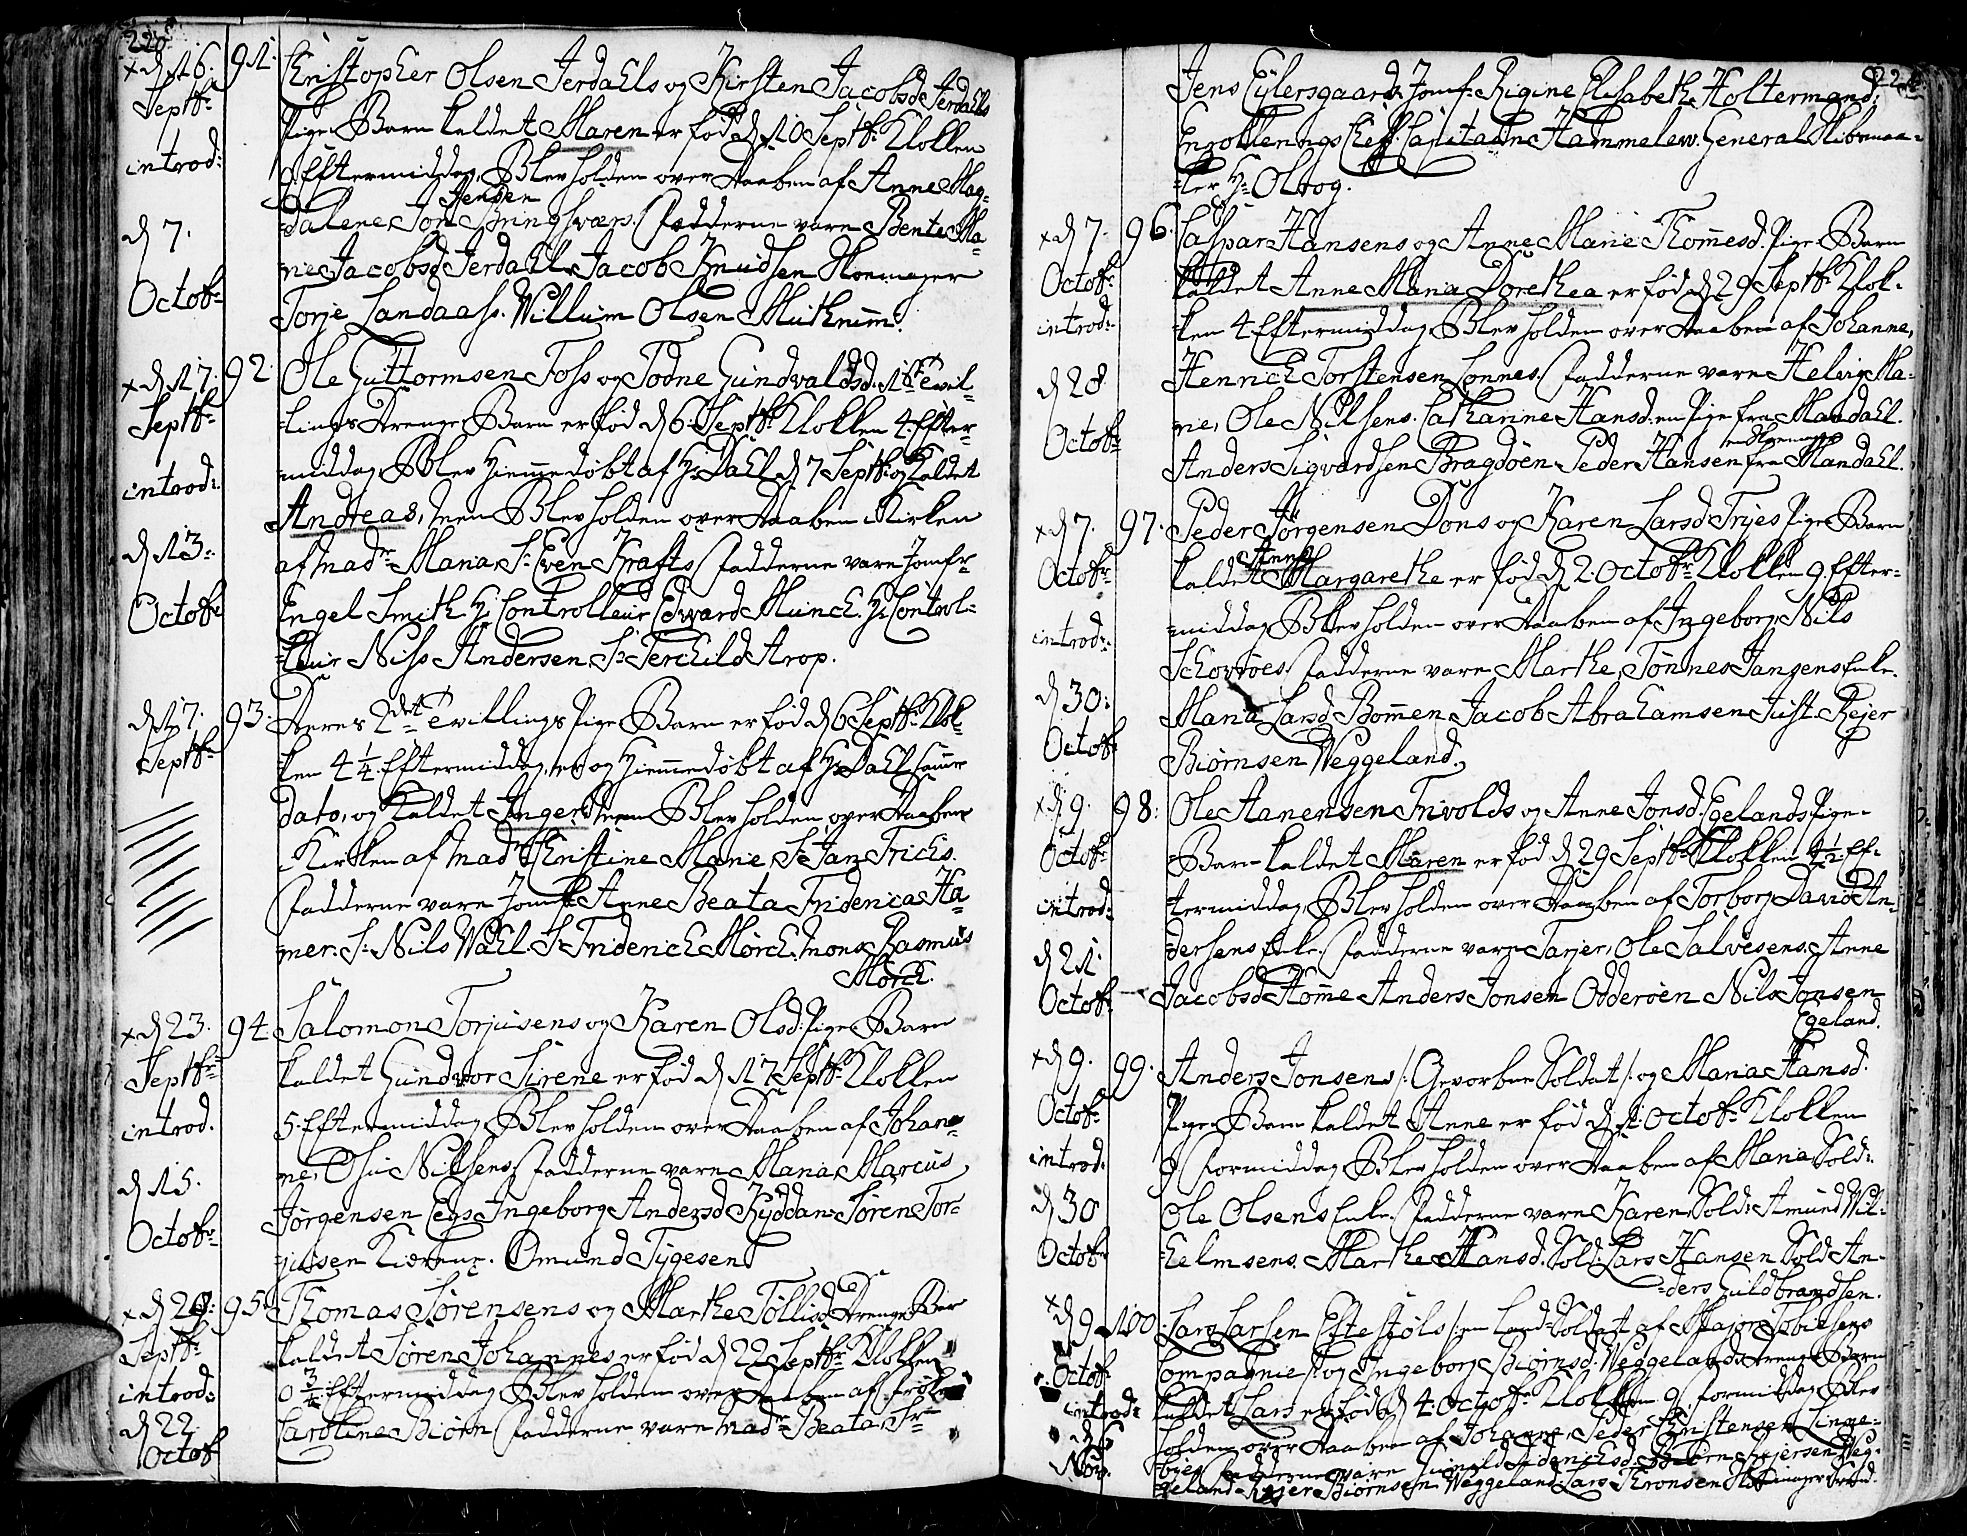 220
× d 16. 91.
Septbr
introd:
d 7.
Octobr
Christopher Olsen Jerdahls og Kirsten Jacobsd Jerdahls
Pige Barn kaldet Maren er fød d 10 Septbr Klokken
9 Eftermiddag, Blev holden over Daaben af Anne Mag-
Jensen
dalene Jon Bringsværs. Fadderne vare Bente Ma-
rie Jacobsd Jerdahl. Jacob Knudsen Skomager
Torje Landaass. Willum Olsen
× d 17. 92.
Septbr
introd:
d 13.
Octobr
Ole Guttormsen Foss og Todne Gundvaldsd. 1ste Tvil-
lings Drenge Barn er fød d 6 Septbr Klokken 4 Efter-
middag, Blev Hiemmedøbt af Hr Dahl d 7 Septbr og Kaldet
Andreas, men Blev holden over Daaben i Kirken
af Madr Maria Sr Even Krafts Fadderne vare Jomfr
Engel Smith Hr Controlleur Edvard Munch. Hr Control-
leur Niss Andersen, Sr Terchild Arop.
d 17. 93.
Septbr
Deres 2det Tvillings Pige Barn er fød d 6 Septbr Klok-
ken 4 1/4 Eftermiddag, og Hiemmedøbt af Hr Dahl samme
dato, og Kaldet Inger, men Blev holden over Daaben
i Kirken af Madr Christine Marie Sr Jan Friis.
Fadderne vare Jomfr Anne Beata Friderica Ha-
mer. Sr Nils Wahl. Sr Friderich Mørch. Mons Rasmus
Mørch.
× d 23. 94.
Septbr
introd.
d 15.
Octobr
Salomon Torjusens og Karen Olsd. Pige Barn
kaldet Gundvor Sirene er fød d 17 Septbr Klokken
5 Eftermiddag, Blev holden over Daaben af Johan-
ne, Osu Nilsens. Fadderne vare Maria Marcus
Jørgensen Egs Ingeborg Andersd Kyddan Søren Tor-
jusen Omund Tygesen
× d 28. 95.
Septbr
introd:
d 22
Octobr
Thomas Sørensens og Marthe Tollisd Drenge Bar
kaldet Søren Johannes er fød d 22 Septbr Klokken
0 3/4 Eftermiddag, Blev holden over Daaben af
Caroline Biørn Fadderne vare Madr Beata Sr
Jens Eylersgaards Jomfr Rigine Elisabeth Holtermand,
Enrollerings Chef. Capitaine Hammelew. General
ler Hr Oltog.
× d 7. 96.
Octobr
introd:
d 28
Octobr
Caspar Hansens og Anne Marie Thomesd. Pige Barn
kaldet Anne Maria Dorethea er fød d 29 Septbr Klok-
ken 4 Eftermiddag, Blev holden over Daaben af Johanne,
Henrich Torstensen Lonnes. Fadderne vare Helvig Ma-
rie, Ole Nilsens. Catharine Hansd. en Pige fra Mandahl.
Anders Sigvardsen Bragdøen Peder Hansen fra Mandahl.
× d 7. 97.
Octobr
introd:
d 30.
Octobr
Peder Jørgensen Dons og Karen Larsd Tryes Pige Barn
Anne
kaldet Margarethe er fød d 2 Octobr Klokken 9 Efter-
middag, Blev holden over Daaben af Ingeborg Nils
Fadderne vare Marthe, Tønnes Jansens Enke.
Maria Larsd Bommen Jacob Abrahamsen Just. Rejer
Biørnsen Veggeland.
× d 9. 98.
Octobr
introd:
d 21.
Octobr
Ole Aanensen Trivolds og Anne Jonsd Egelands Pige
Barn kaldet Maren er fød d 29 Septbr Klokken 4 1/2 Ef-
termiddag, Blev holden over Daaben af Torborg David An-
dersens Enke. Fadderne vare Tarjer, Ole Salvesens. Anne
Jacobsd Homme Anders Jonsen Odderøen Nils Jonsen
Egeland.
× d 9. 99.
Octobr
introd:
d 30
Octobr
Anders Jonsens /: Gevorben Soldat /: og Maria Hansd.
Pige Barn kaldet Anne er fød d 1 Octobr Klokken
9 Formiddag, Blev holden over Daaben af Maria Sold:
Ole Olsens Enke. Fadderne vare Karen Sold: Amund Wil-
helmsens. Marthe Hansd. Sold: Lars Hansen Sold An-
ders Guldbrandsen.
× d 9 100.
Octobr
introd:
d 6
Nov.
Lars Larsen Eftestøls /: en Land Soldat af Major Tobiesens
Compagnie /: og Ingeborg Biørnsd. Veggelands Drenge Barn
kaldet Lars er fød d 4 Octobr Klokken 9 Formiddag Blev
holden over Daaben af Johanne, Peder Christensen
Fadderne vare Biørn Rejersen Veg-
geland Rejer Biørnsen Veggeland Lars Thronsen